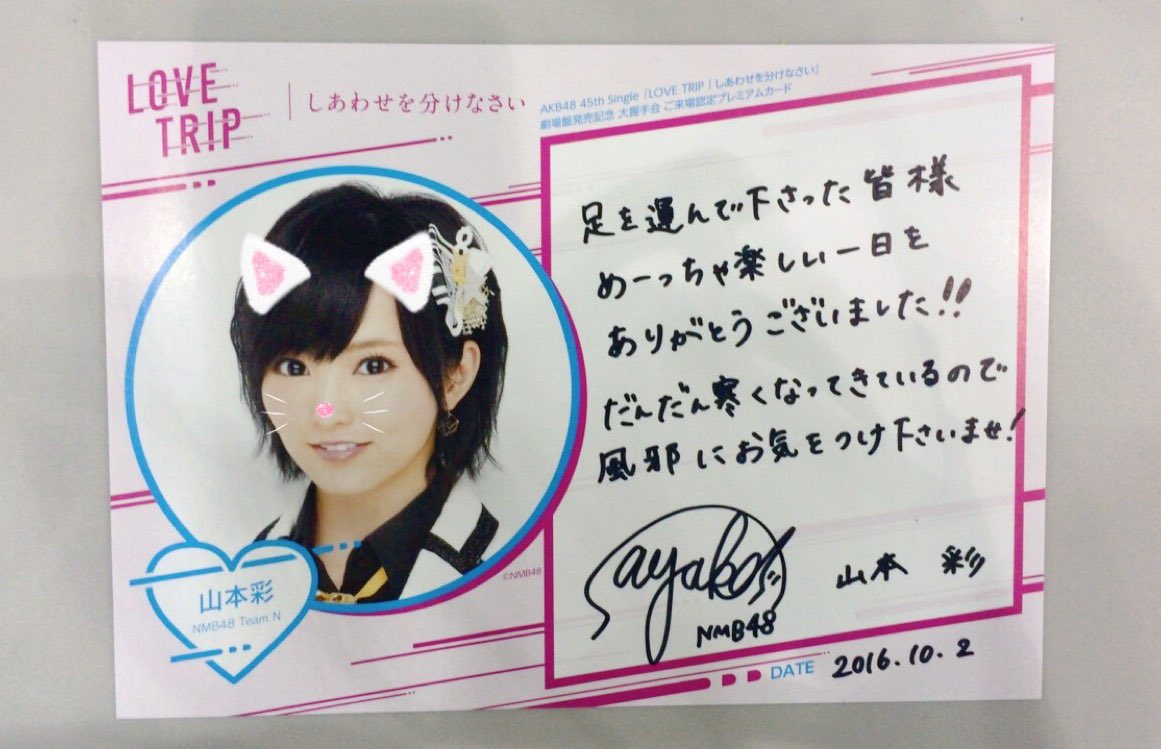 LOVE
TRIP
しあわせを分けなさい
AKB48 45th Single 『LOVE TRIP | しあわせを分けなさい』
劇場盤発売記念 大握手会 ご来場認定プレミアムカード
足を運んで下さった皆様
めーっちゃ楽しい一日を
ありがとうございました!!
だんだん寒くなってきているので
風邪にお気をつけ下さいませ!
Sayaka
NMB48
山本 彩
©NMB48
山本彩
NMB48 Team N
DATE 2016.10.2